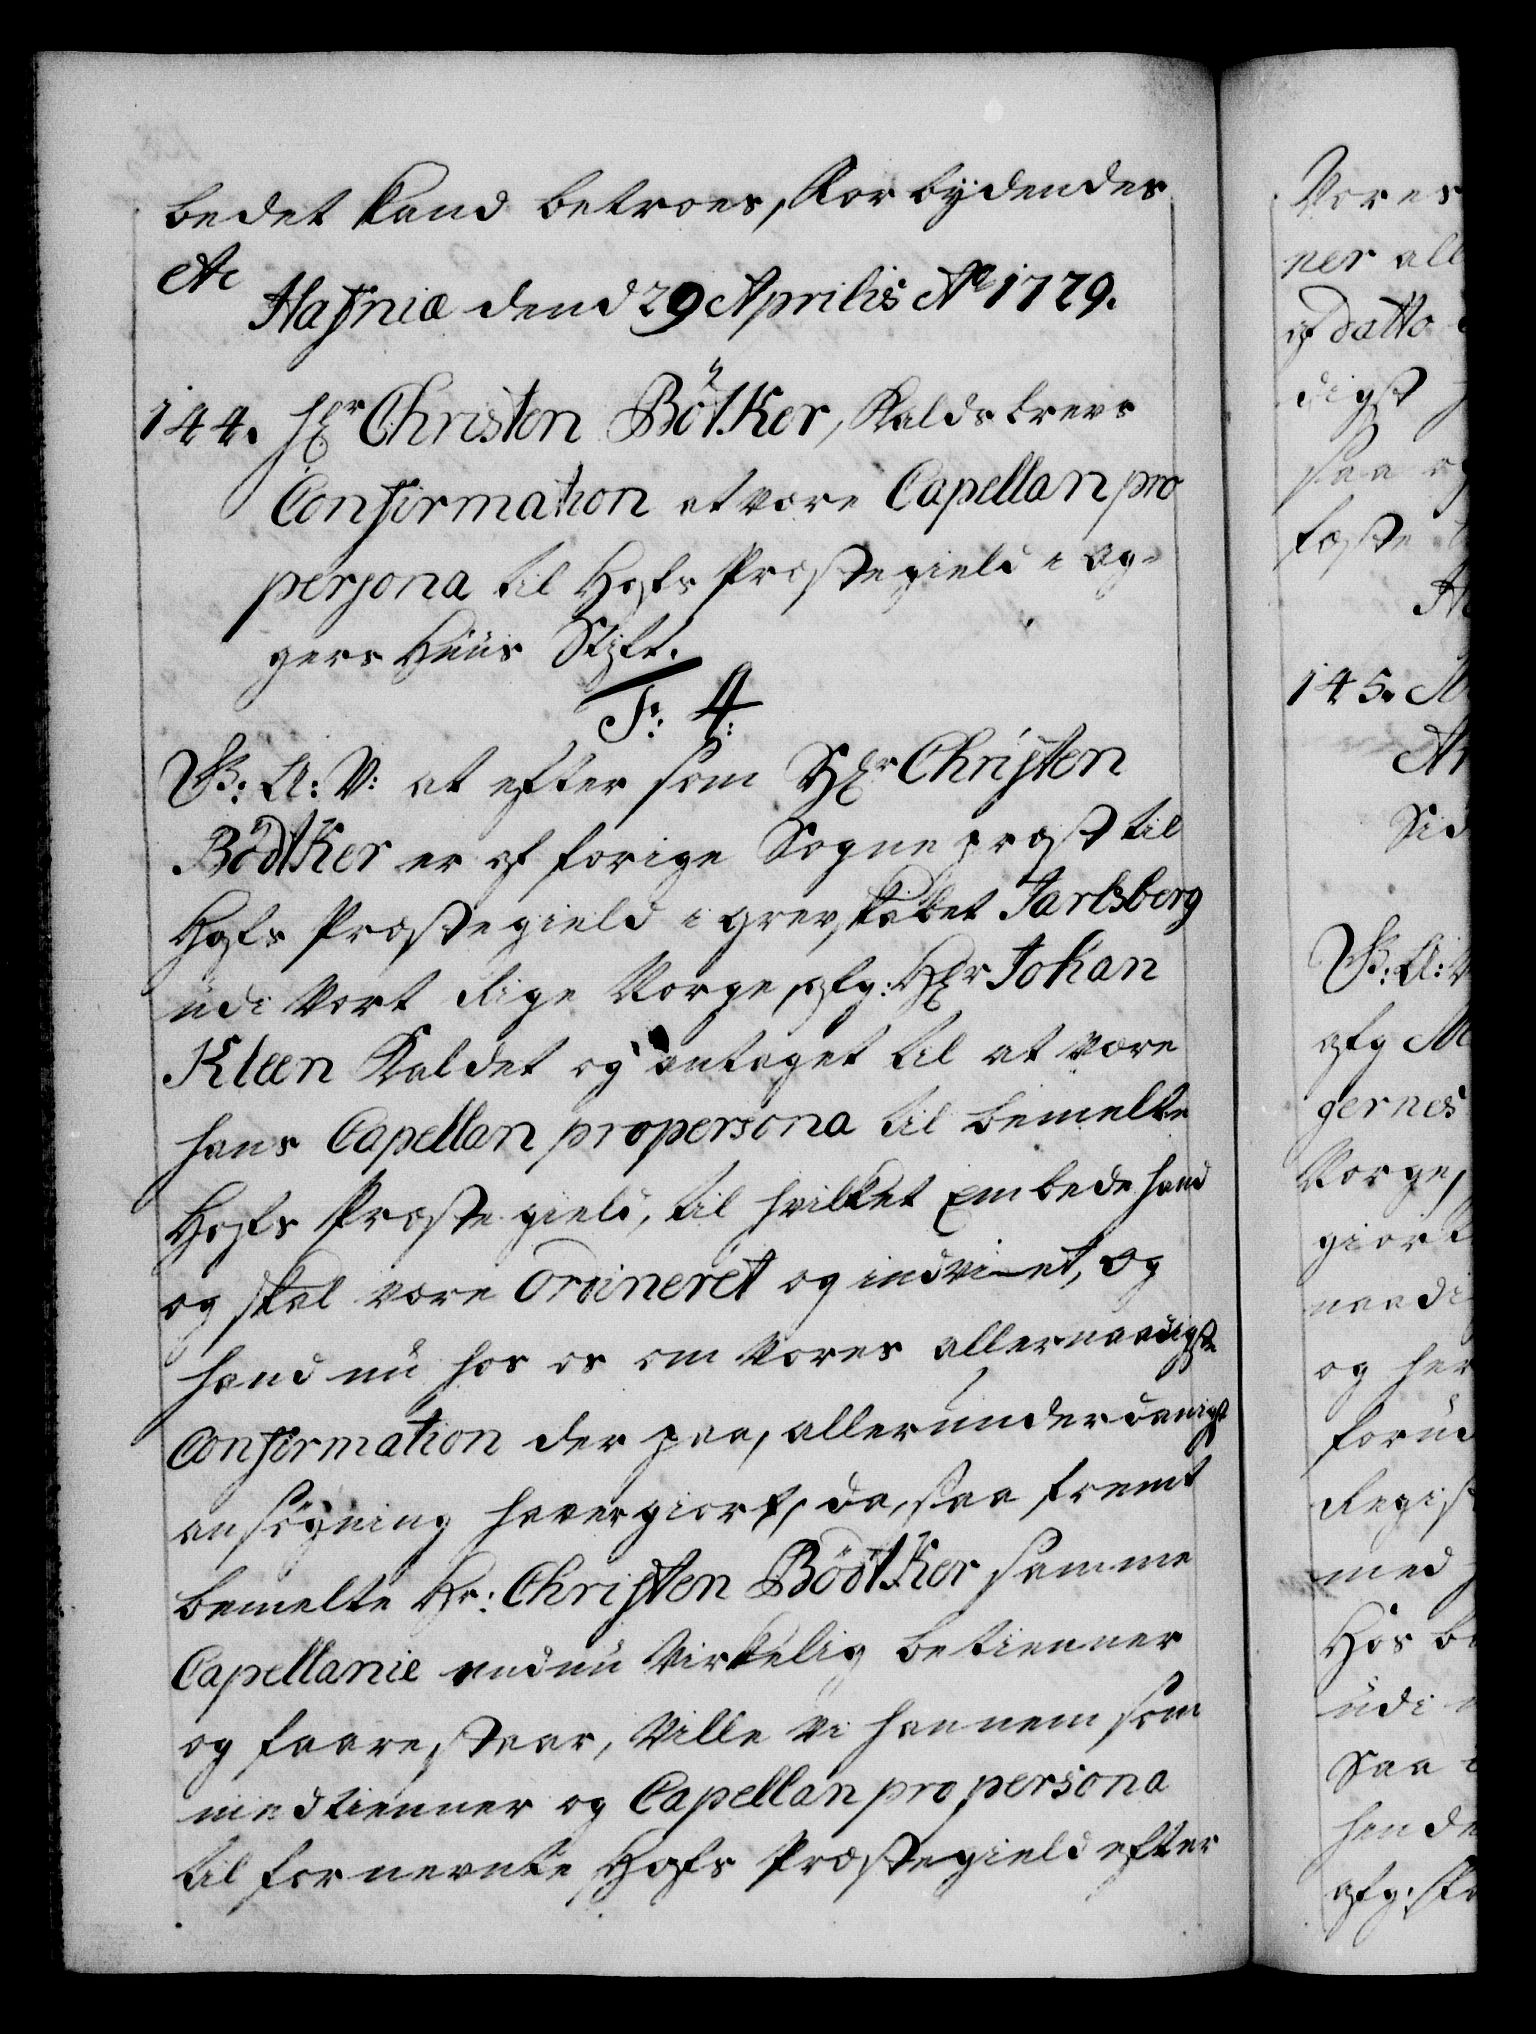 bedet kand betroes, Forbydendes
etc
Hafniæ dend 29 Aprilis Ao 1729.
144. Hr Christen Bötker, Kaldsbrevs
Confirmation at være Capellan pro
persona til Hofs Præstegield i Ag-
gers Huus Stift.
F: 4:
G: A: V: at eftersom Hr Christen
Bödtker er af forige Sognepræst til
Hofs Præstegield i Grevskabet Jarlsberg
udi Vort Rige Norge, Hr Johan
Kleen Kaldet og antaget til at være
hans Capellan pro persona til bemelte
Hofs Præstegield, til hvilket Embede hand
og skal være Ordineret og indviet, og
hand nu hos os om Vores allernaadigste
Confirmation der paa, allerunderdanigst
ansøgning haver giort, da, saafremt
bemelte Hr: Christen Bödtker samme
Capellanie endnu Virkelig betienner
og faarestaar, Ville Vi hannem som
medtienner og Capellan pro persona
til fornevnte Hofs Præstegield efter
Vores
ner all
af datto
digst
saa og
fæste
145.
Sid
G: A: V
afg
gernes
Norge,
giort
naadi
og her
forud
Regist
med
Hos be
udi
Saa
hende
afg: